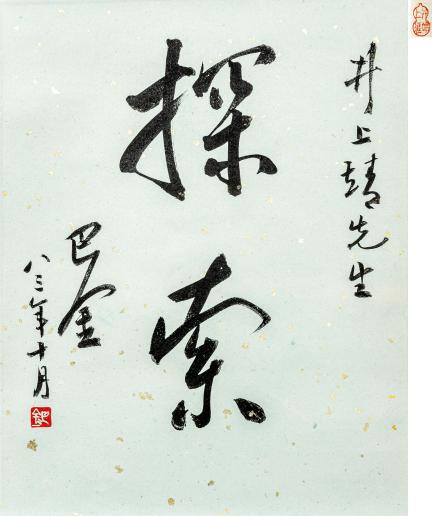 井上靖先生
探索
巴金
八三年十月